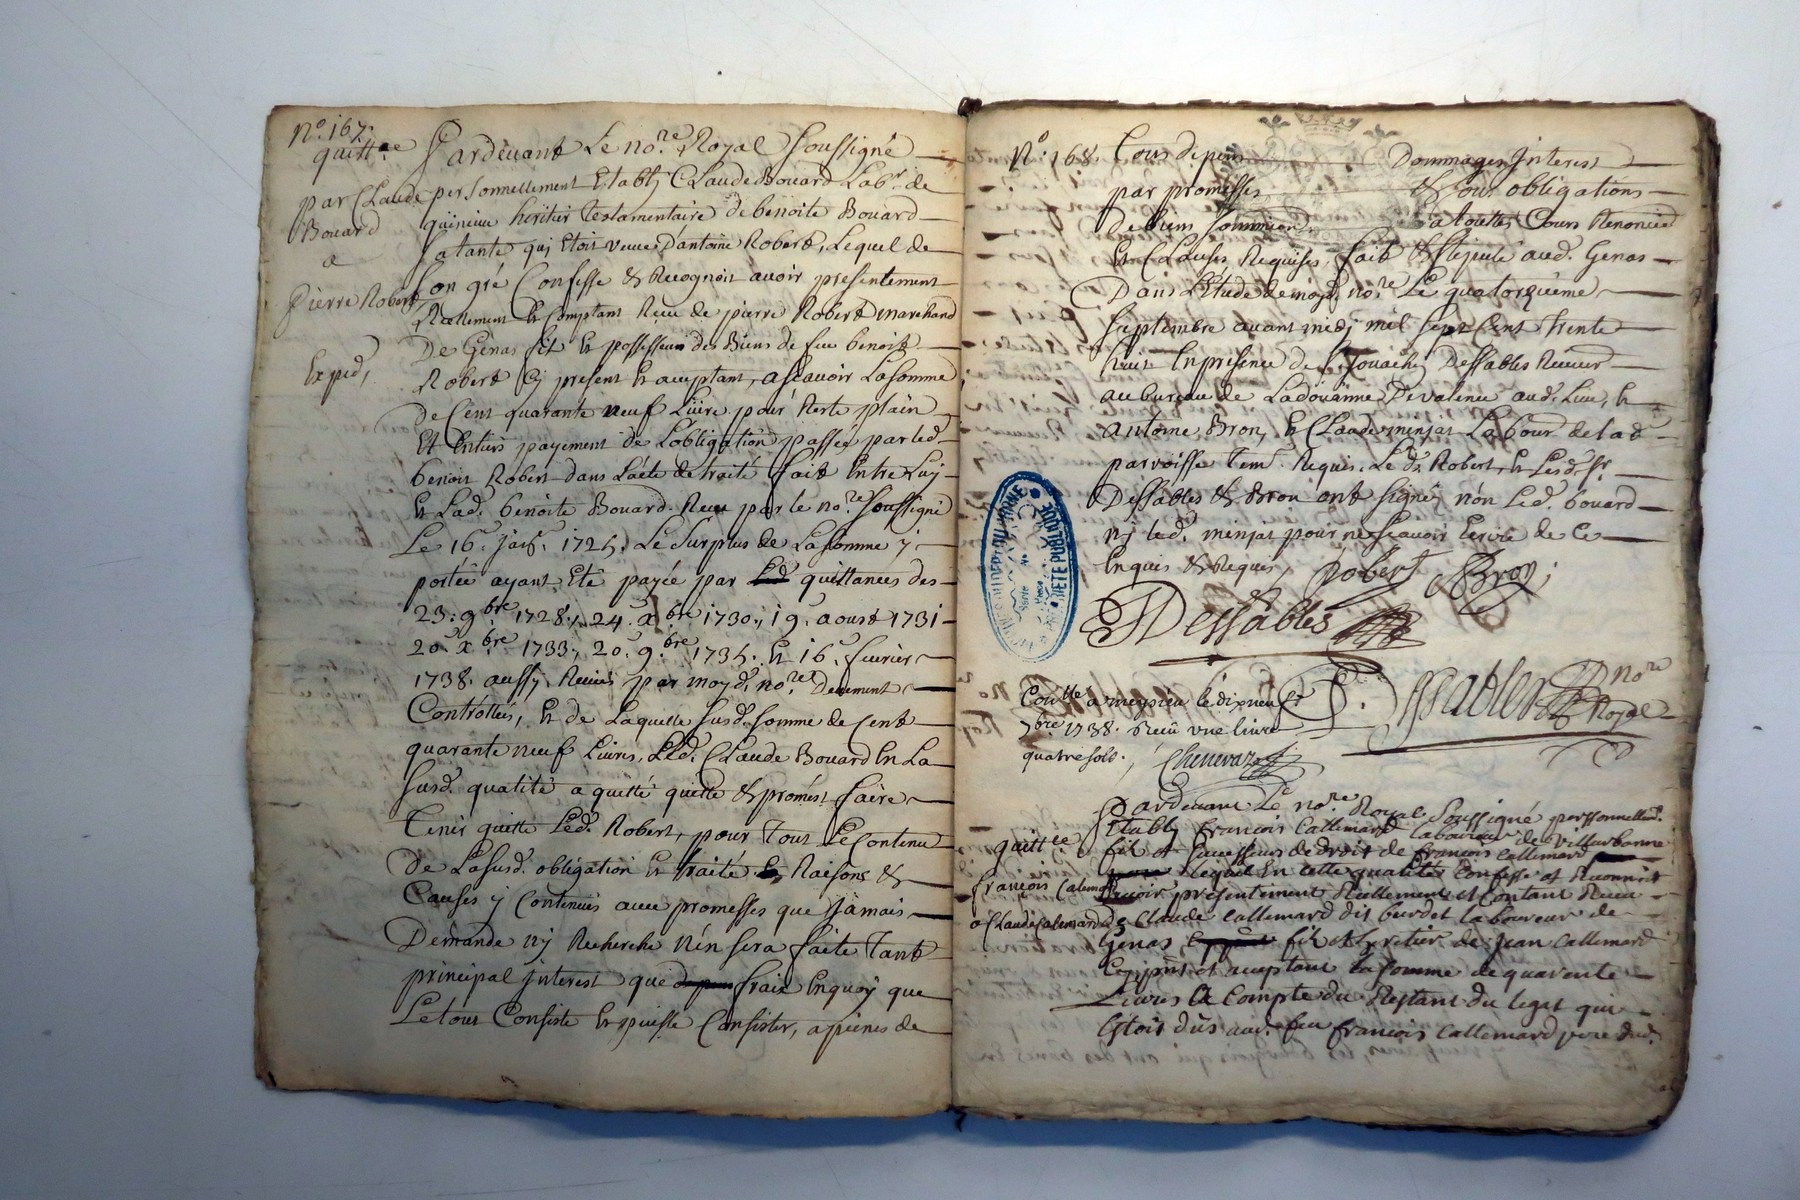 No. 167.
quitt.ce
par Claude
Bouard
a
Pierre Robert
Exped.
Pardevant Le no.re Royal Soussigné
personnellement Etably Claude Bouard Lab.r de
heritier Testamentaire de benoite Bouard
sa tante qui Etoit veuve D'antoine Robert, Lequel de
son gré Confesse & Recognoit avoir presentement
Reellement Et Comptant Reçu de pierre Robert marchand
De Genas fil Et possesseur des Biens de feu benoit
Robert Cy present Et acceptant, a scavoir La somme
De Cent quarante neuf Livre pour Reste plain
Et Entiers payement de L'obligation passée par led.
benoit Robert dans L'acte de traité fait Entre Luy
Et Lad. benoite Bouard Reçu par le no.re soussigné
Le 16.e 1725. Le Surplus de La somme y
portée ayant Eté payée par Led. quittances des
23. 9.bre 1728., 24. x.bre 1730., 19. aoust 1731
20.e x.bre 1733., 20.e 9.bre 1735. Et 16.e fevrier
1738. aussy Reçues par moyd. no.re Deuement
Controllées, Et de Laquelle susd. somme de Cent
quarante neuf Livres, Led. Claude Bouard En La
susd. qualité a quitté quitte & promest faire
Tenir quitte Led. Robert, pour Tout Le Contenu
De La susd. obligation Et traité Raisons &
Causes y Contenues avec promesses que jamais
Demande ny Recherche n'en sera faite Tant
principal Interest que depens fraix Enquoy que
Le tout Consiste Et puisse Consister, a peines de
No. 168.
Tous depens Dommages Interest
par promesses & sous obligations
De biens soumissions a touttes Cours Renoncé
Et Clauses Requises. fait & stipulé aud. Genas
Dans L'Etude de moyd. no.re Le quatorzieme
Septembre avant midy mil sept Cent trente
huit En presence de s.r Jouachy Dessables Receveur
au bureau de La doüanne De valence aud. Lieu, Et
Antoine Bron, Et Claude minjat Labour. de lad.
parroisse Tem.s Requis. Le d. Robert, Et Lesd. s.r
Dessables & Bron ont signé, non Led. bouard
ny led. minjat pour ne scavoir Ecrire de Ce
Enquis & Requis,
Robert Bron
Dessables
Dessables no.re
Royal
ARCHIVES DU DEPT DU RHONE
PROPRIETE PUBLIQUE
Con.lle a meysieu le dix neuf
7bre 1738. Reçu une livre
quatre sols.
Chenevaz
quitt.ce
francois Calemard
a Claude Calemard
Pardevant Le no.re Royal soussigné personnellem.t
Etably francois Callemard laboureur de Villeurbanne
fil et successeur de droit de francois Callemard
Lequel En cette qualité Confesse et Reconnoit
avoir presentement Reellement et Contant Reçu
de Claude Callemard dit burdet laboureur de
Genas fil et heretier de jean Callemard
Cy pnt et acceptant la somme de quarente
Livres A Compte du Restant du legat qui
Etoit düs aud. feu francois Callemard pere dud.